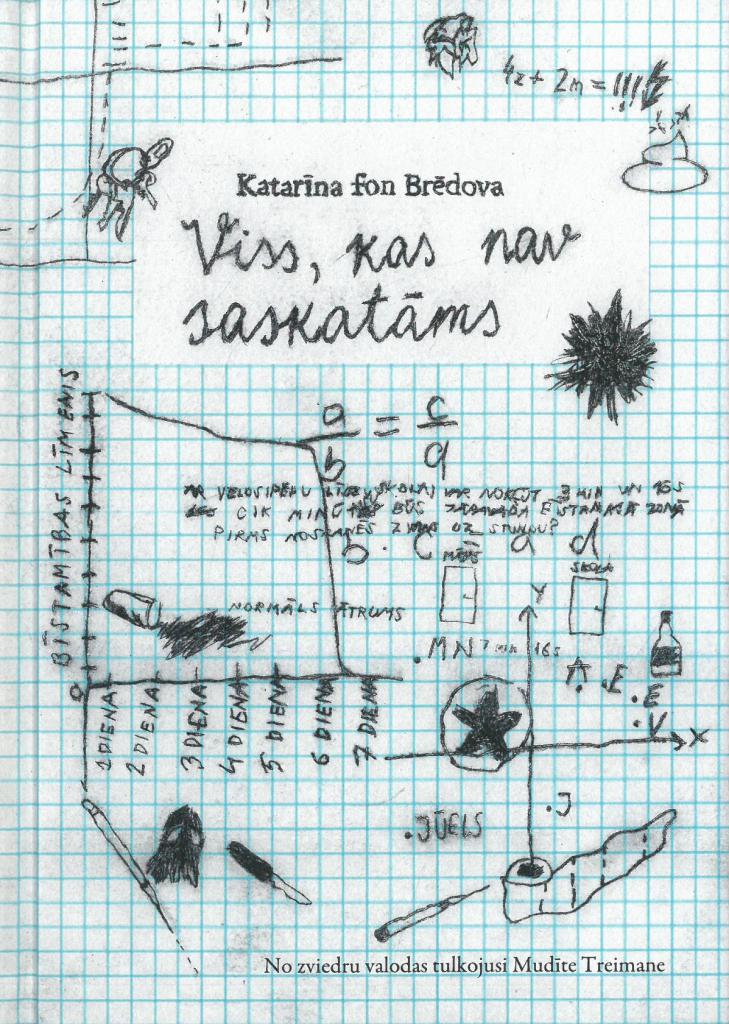 4z + 2m = !!!
Katarīna fon Brēdova
Viss, kas nav
saskatāms
BĪSTAMĪBAS LĪMENIS
a/b = c/d
AR VELOSIPĒDU LĪDZ SKOLAI VAR NOKĻŪT 3 MIN UN 16s
CIK MINŪTES BŪS JĀPAVADA BĪSTAMAJĀ ZONĀ
PIRMS NOSKANĒS ZVANS UZ STUNDU?
b. c ā a d
MĀJAS
SKOLA
NORMĀLS ĀTRUMS
Y
.MN 7 min 16s
A
.E
.E
.V
X
0
1 DIENA
2 DIENA
3 DIENA
4 DIENA
5 DIENA
6 DIENA
7 DIENA
.J
.JŪELS
No zviedru valodas tulkojusi Mudīte Treimane